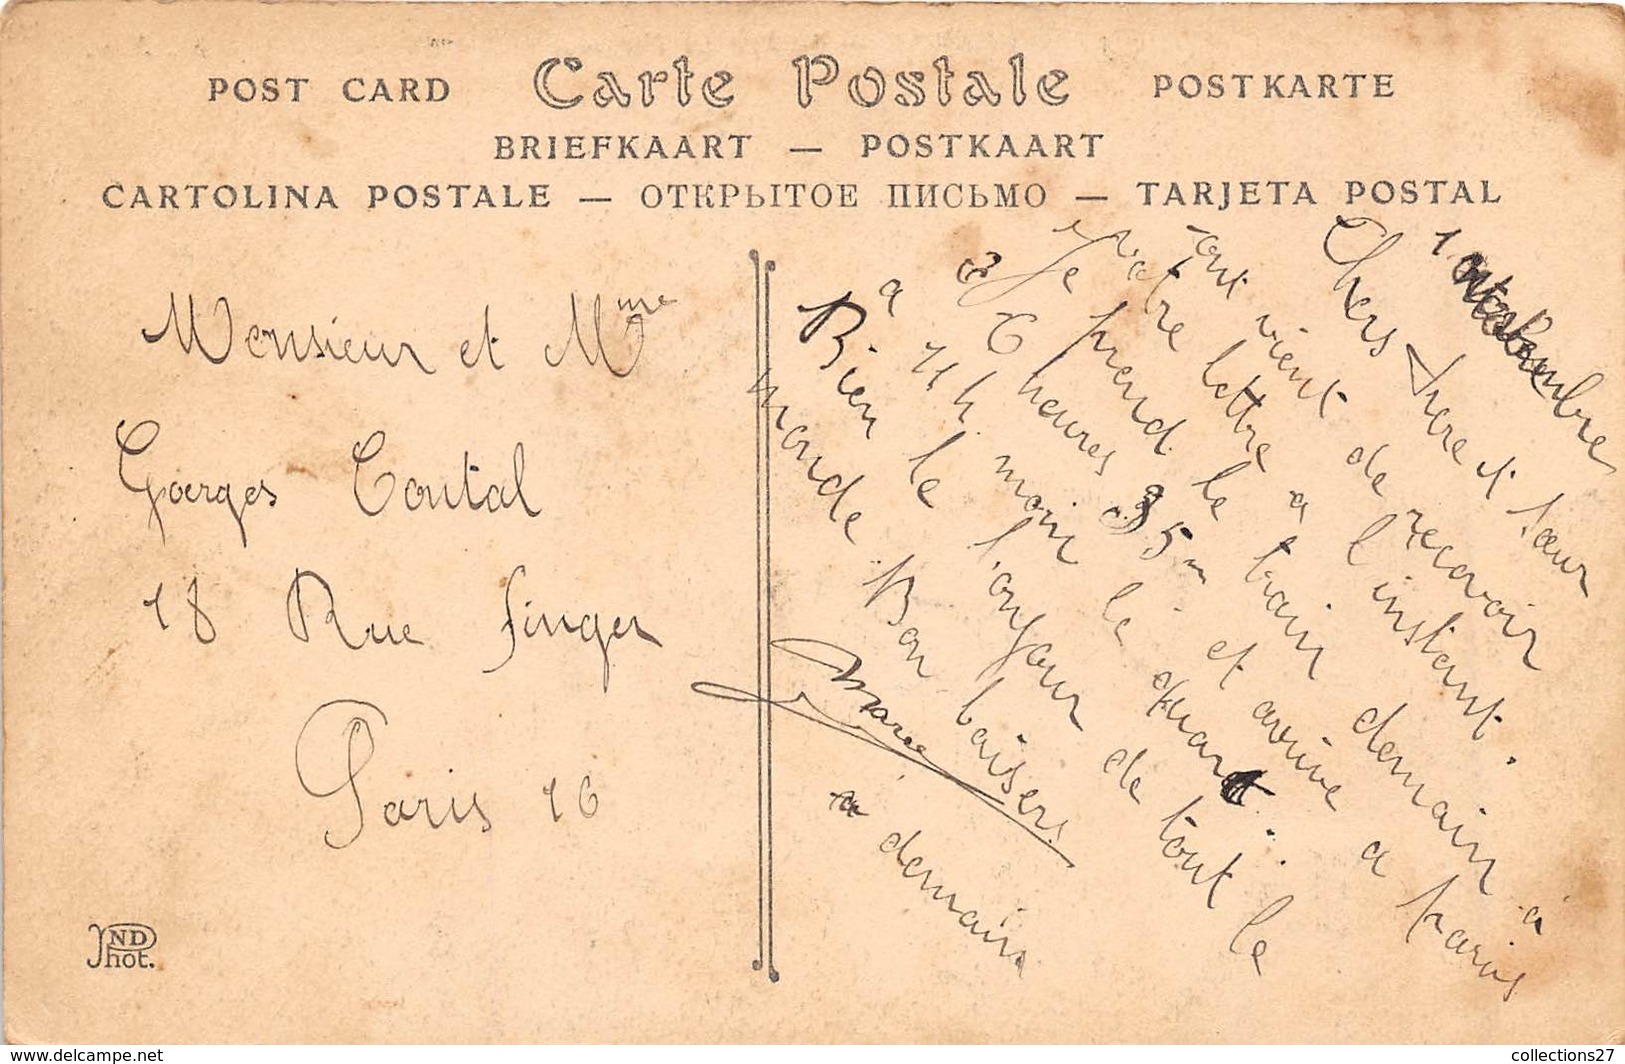 POST CARD Carte Postale POSTKARTE
BRIEFKAART — POSTKAART
CARTOLINA POSTALE — ОТКРЫТОЕ ПИСЬМО — TARJETA POSTAL
Monsieur et Mme
Goerges Coutal
18 Rue Singer
Paris 16
ND
Phot.
1
Chers Frere et Sœur
ont vient de recevoir
votre lettre a l'instant.
Je prend le train demain à
6 heures 35 m et arrive a Paris
a 11 h moin le quart.
Bien le bonjour de tout le
monde Bon baisers
Marie
a demain
www.delcampe.net
collections27